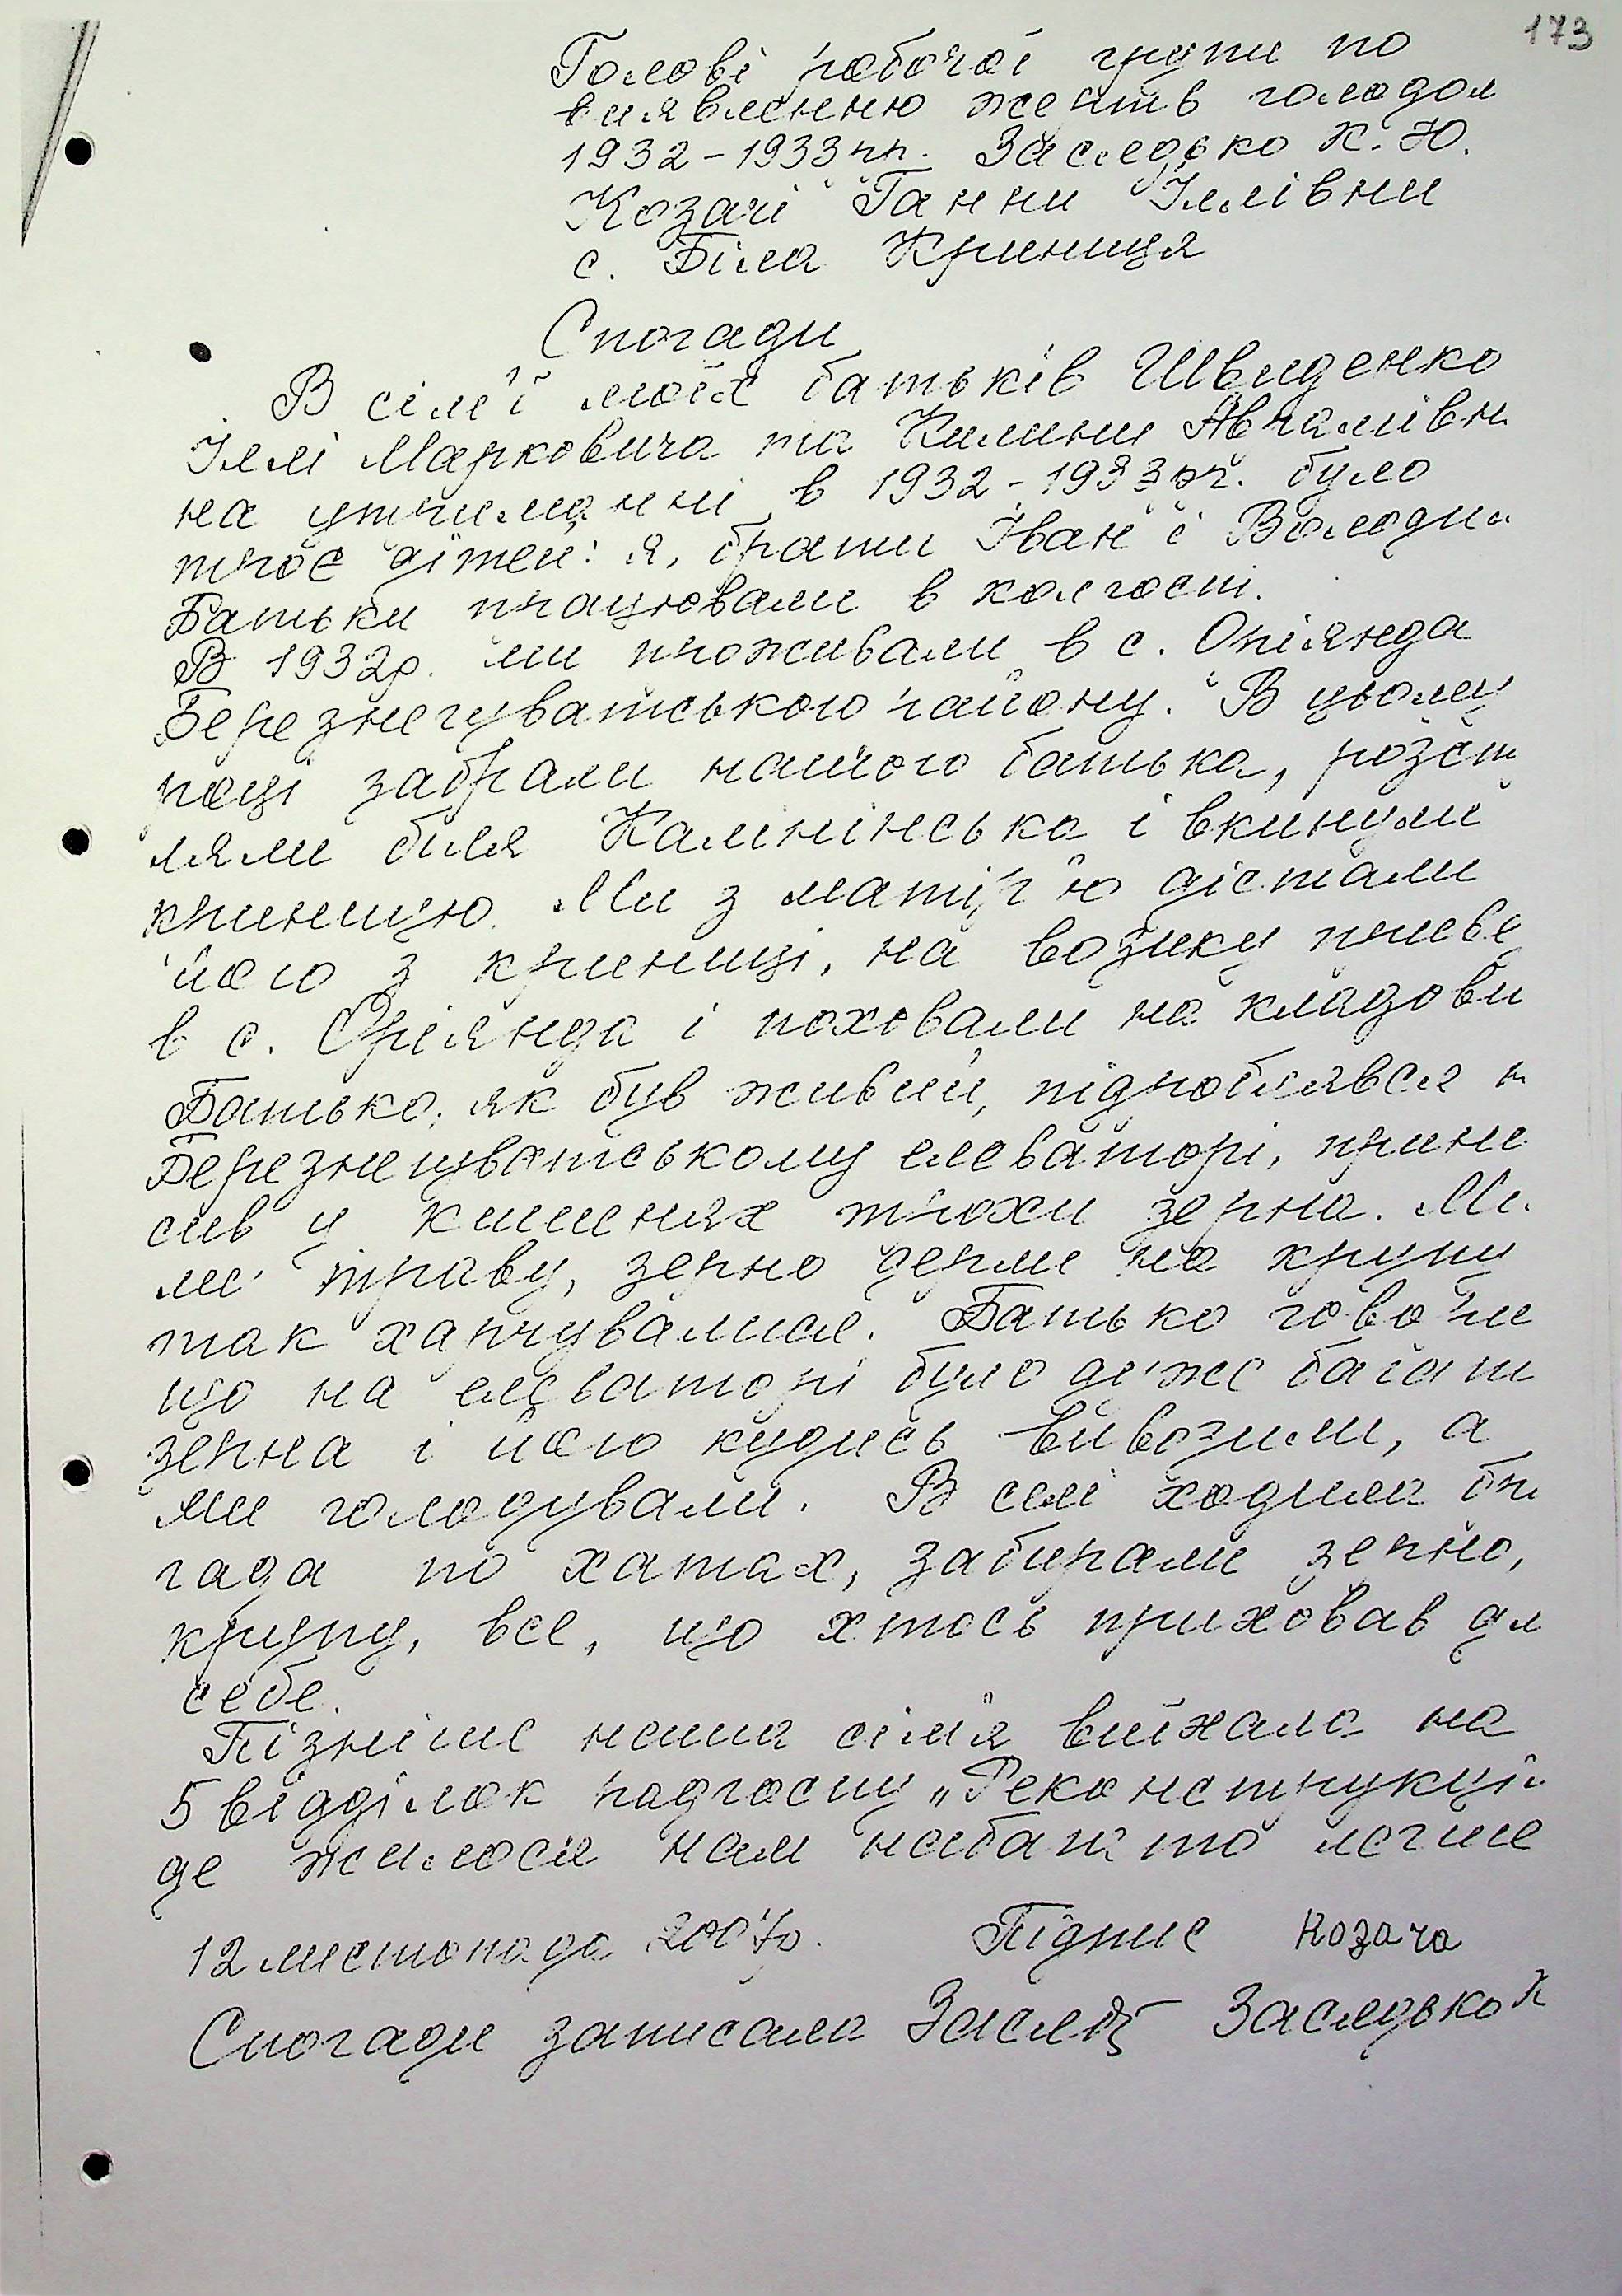 173
Голові робочої групи по
виявленню жертв голодом
1932-1933рр. Заследько К.Ю.
Козачі Ганни Іллівни
с. Біла Криниця
Спогади
В сім'ї моїх батьків Швиденко
Іллі Марковича та Килини Аврамівн
на утриманні в 1932-1933рр. було
троє дітей: я, брати Іван і Володи
Батьки працювали в колгоспі.
В 1932р. ми проживали в с. Оріянда
Березнегуватського району. В цьому
році забрали нашого батька, розст
ляли біля Калинінська і вкинули
криницю. Ми з матір'ю дістали
його з криниці, на возику приве
в с. Оріянда і поховали на кладови
Батько, як був живий, підроблявся н
Березнегуватському елеваторі, прино
сив у кишенях трохи зерна. Ми
ли траву, зерно дерли на крупи
так харчувалися. Батько говори
що на елеваторі було дуже багат
зерна і його кудись вивозили, а
ми голодували. В селі ходила бри
гада по хатах, забирали зерно,
крупу, все, що хтось приховав дл
себе.
Пізніше наша сім'я виїхала на
5 відділок радгоспу „Реконструкці
де жилося нам набагато легше
12 листопада 2007р. Підпис Козача
Спогади записала Заслед Заследько К